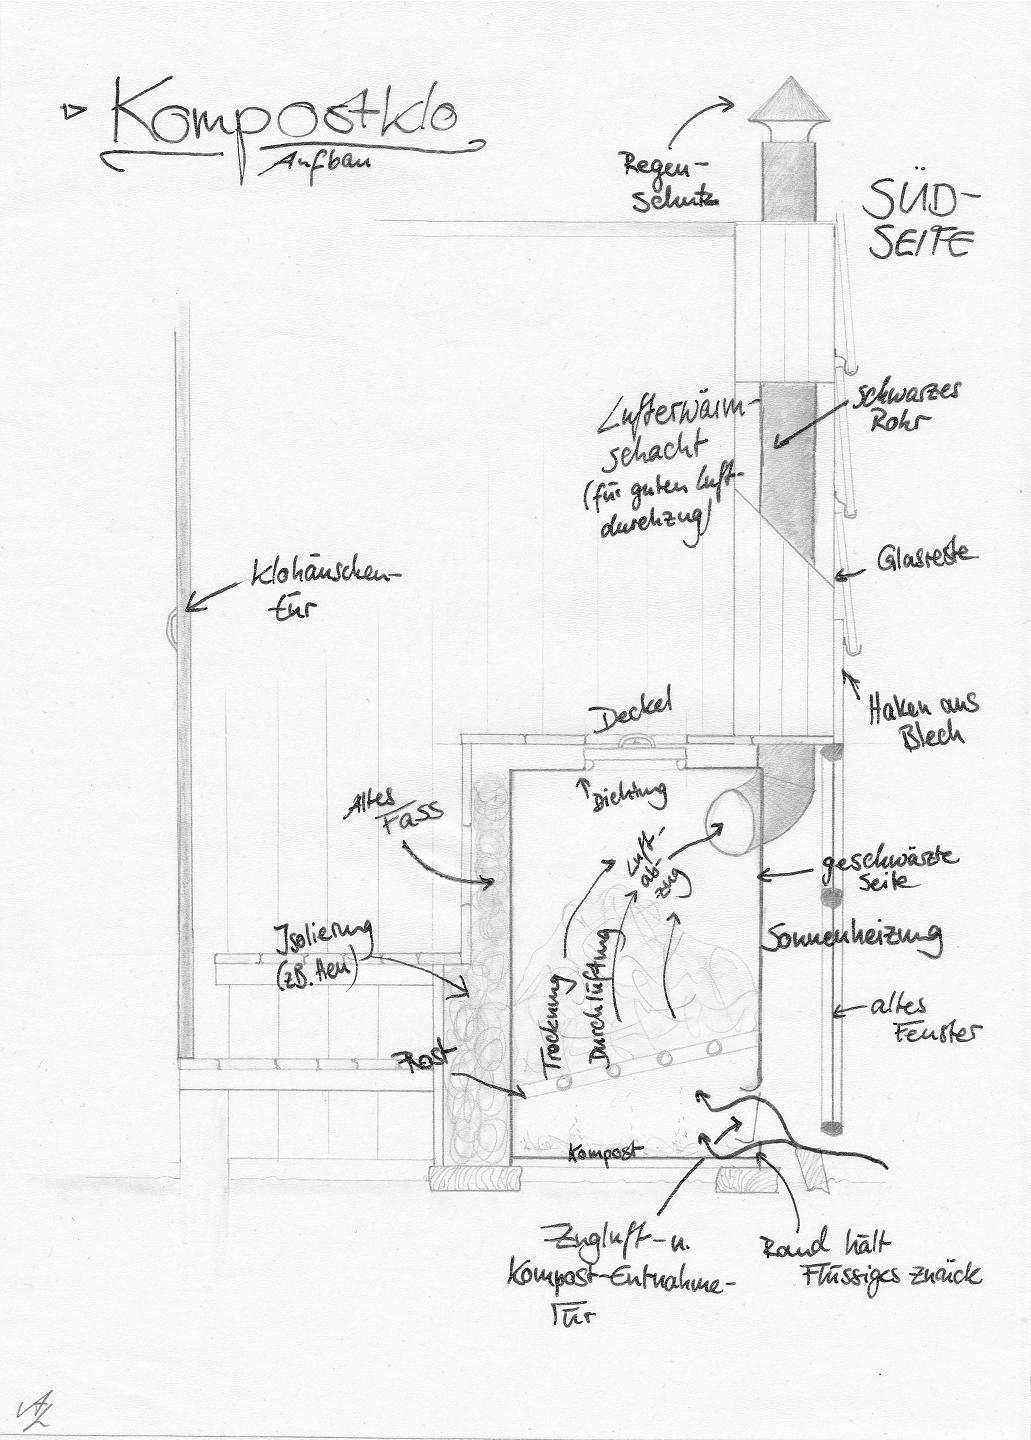 Kompostklo
Aufbau
Regen-
schutz
SÜD-
SEITE
schwarzes
Rohr
Lufterwärm-
schacht
(für guten Luft-
durchzug)
Glasreste
Klohäuschen-
tür
Haken aus
Blech
Deckel
Dichtung
Altes
Fass
Luft-
ab-
zug
geschwärzte
Seite
Isolierung
(zB. Heu)
Sonnenheizung
Trocknung
Durchlüftung
altes
Fenster
Rost
Kompost
Zugluft- u.
Kompost-Entnahme-
Tür
Rand hält
Flüssiges zurück
AZ